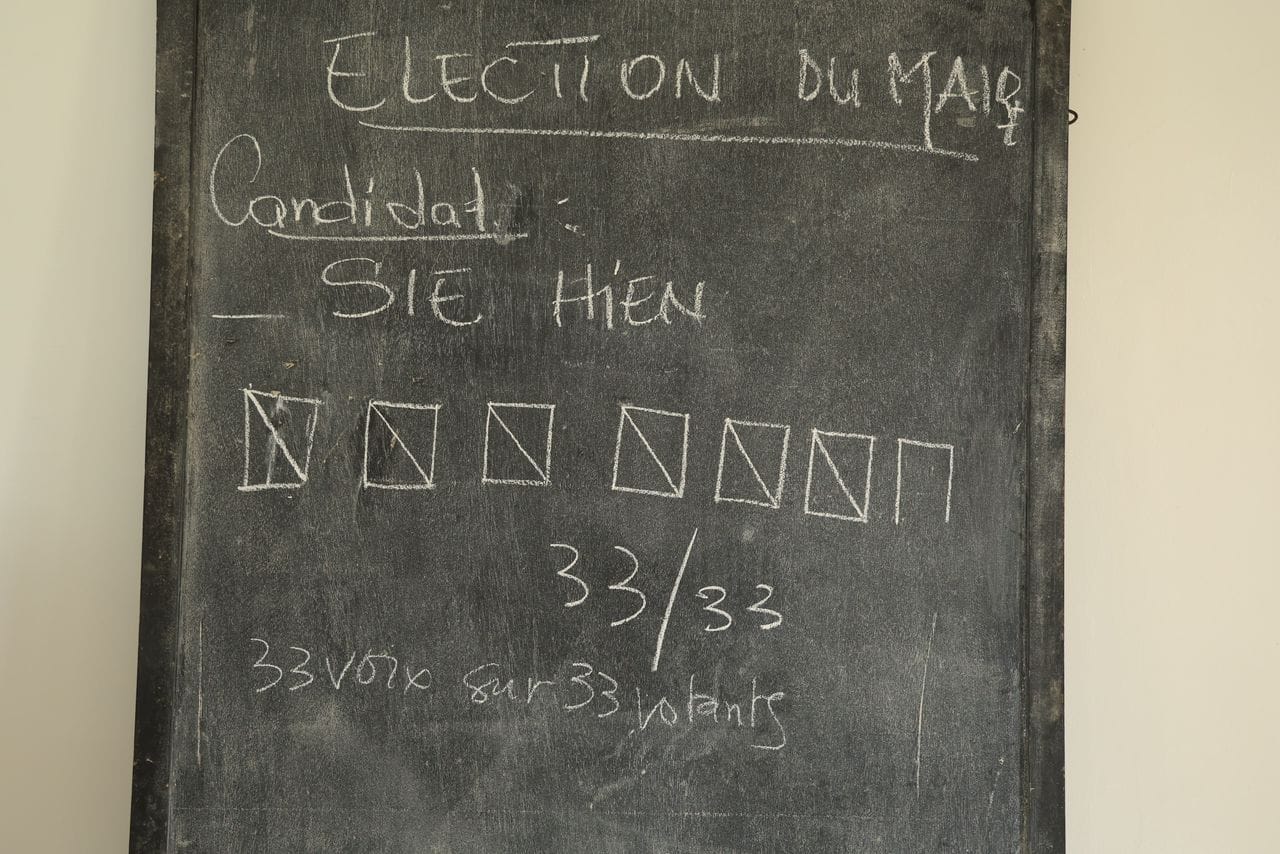 ELECTION DU MAIRE
Candidat :
_ SIE HIEN
33/33
33 voix sur 33 votants